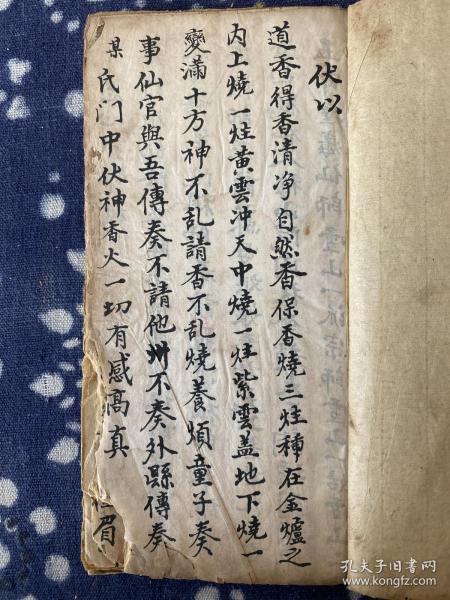 伏以
道香得香清净自然香保香燒三炷種在金爐之
内上燒一炷黄雲冲天中燒一炷紫雲盖地下燒一
變滿十方神不乱請香不乱燒養煩童子奏
事仙官與吾傳奏不請他州不奏外縣傳奏
某氏门中伏神香火一切有感高真
眉
孔夫子旧书网